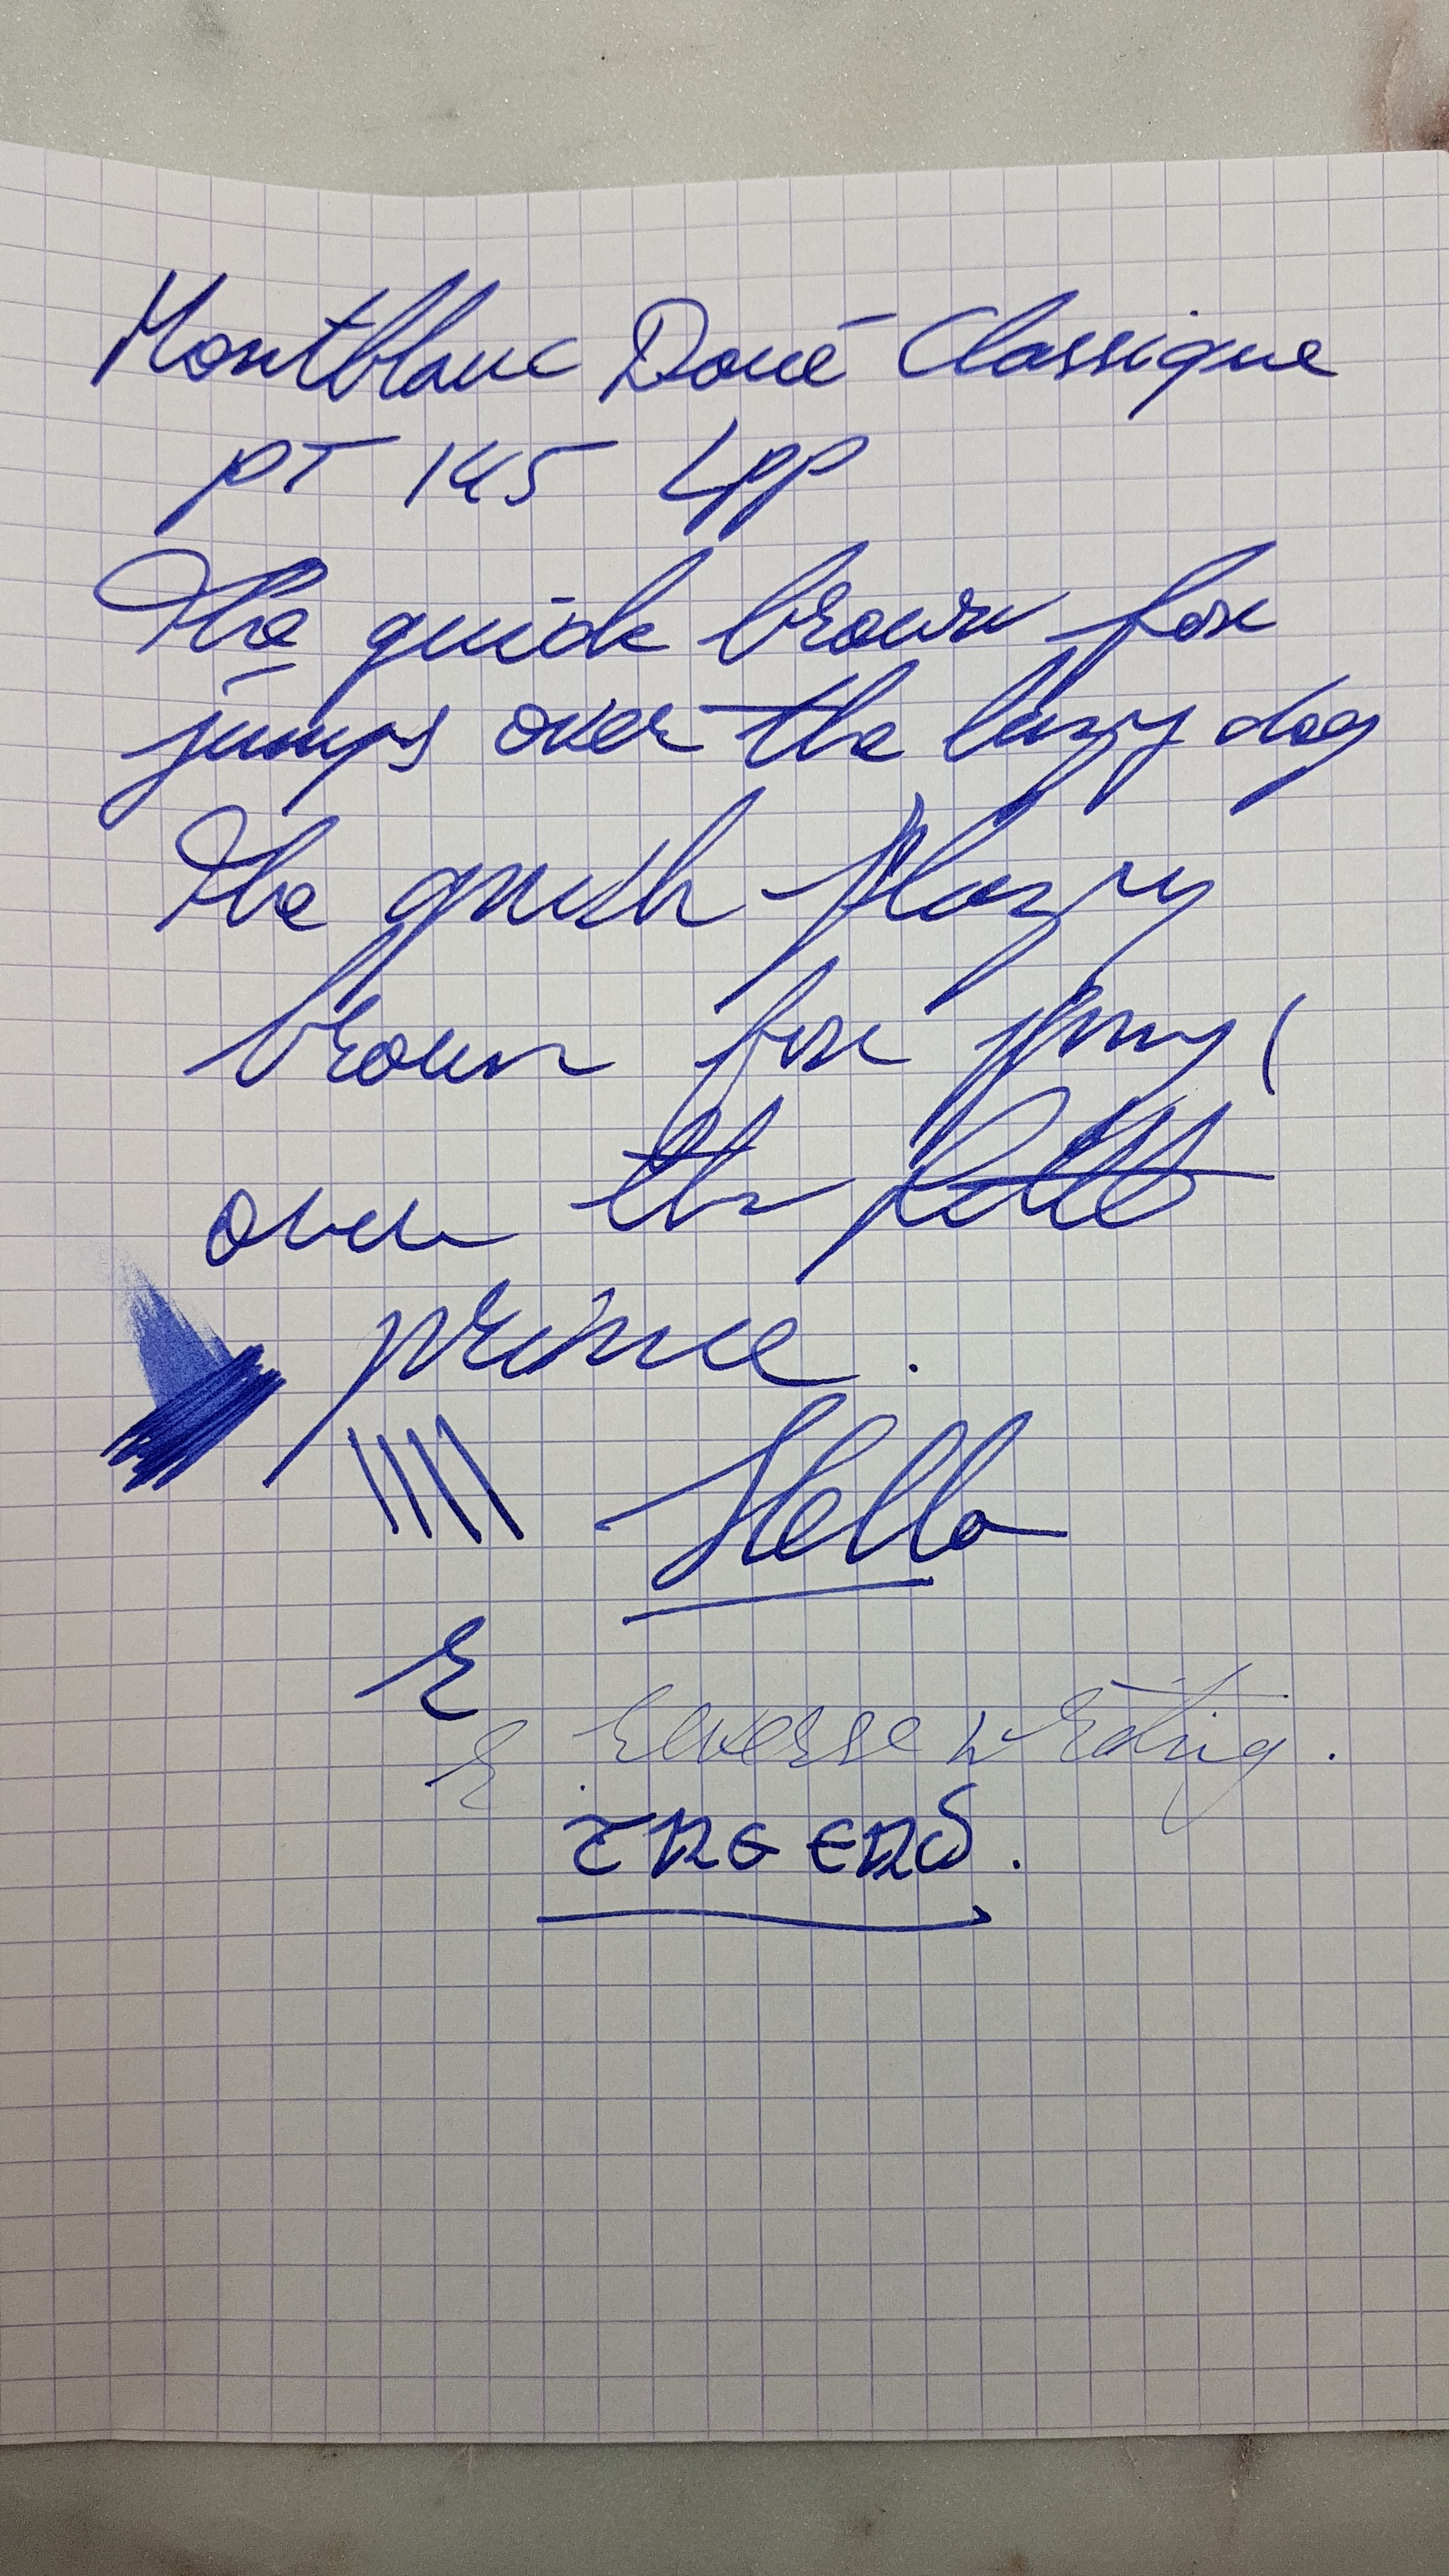 Montblanc Doué Classique
PT 145 LPP
The quick brown fox
jumps over the lazy dog
The quick
brown fox
over the
prince.
Hello
E
E reverse writing.
THE END.